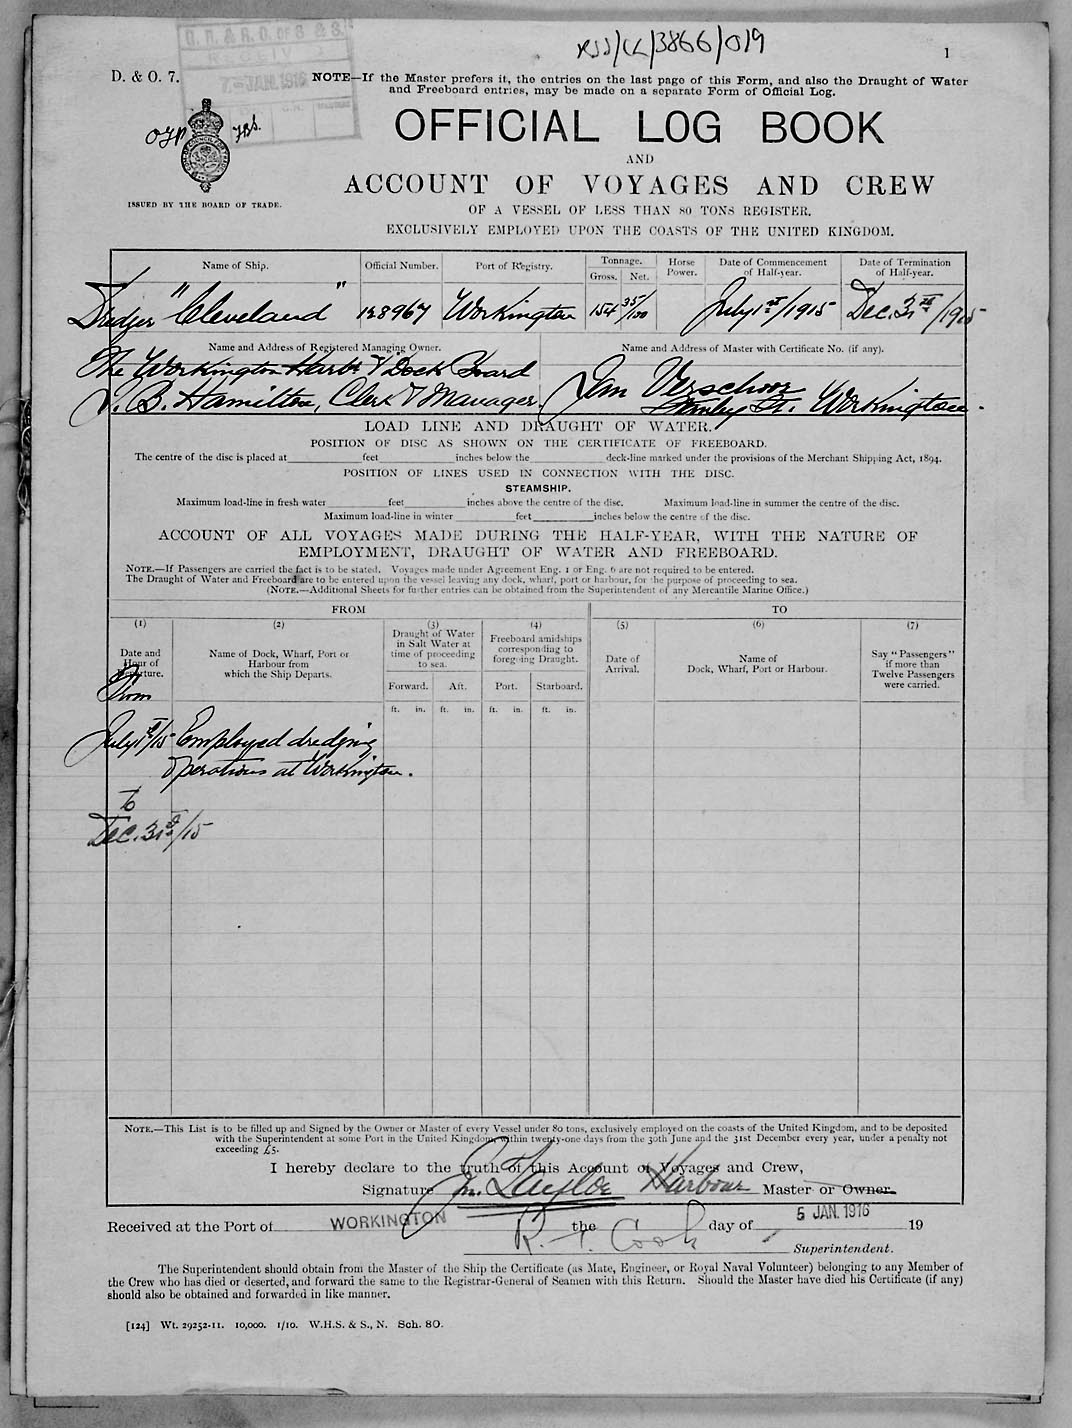 RSS/CL/3866/019
1
D. & O. 7.
RECEIV
7 - JAN. 1916
NOTE—If the Master prefers it, the entries on the last page of this Form, and also the Draught of Water
and Freeboard entries, may be made on a separate Form of Official Log.
OFFICIAL LOG BOOK
AND
ACCOUNT OF VOYAGES AND CREW
OF A VESSEL OF LESS THAN 80 TONS REGISTER,
EXCLUSIVELY EMPLOYED UPON THE COASTS OF THE UNITED KINGDOM.
ISSUED BY THE BOARD OF TRADE.
Name of Ship. Official Number. Port of Registry. Tonnage. Gross. Net. Horse Power. Date of Commencement of Half-year. Date of Termination of Half-year.
Dredger "Cleveland" 128967 Workington 154 35/100 July 1st/1915 Dec. 31st/1915
Name and Address of Registered Managing Owner. Name and Address of Master with Certificate No. (if any).
The Workington Harbr & Dock Board
J. B. Hamilton, Clerk & Manager. Jan Verschoor
Stanley St. Workington.
LOAD LINE AND DRAUGHT OF WATER.
POSITION OF DISC AS SHOWN ON THE CERTIFICATE OF FREEBOARD.
The centre of the disc is placed at feet inches below the deck-line marked under the provisions of the Merchant Shipping Act, 1894.
POSITION OF LINES USED IN CONNECTION WITH THE DISC.
STEAMSHIP.
Maximum load-line in fresh water feet inches above the centre of the disc. Maximum load-line in summer the centre of the disc.
Maximum load-line in winter feet inches below the centre of the disc.
ACCOUNT OF ALL VOYAGES MADE DURING THE HALF-YEAR, WITH THE NATURE OF
EMPLOYMENT, DRAUGHT OF WATER AND FREEBOARD.
NOTE.—If Passengers are carried the fact is to be stated. Voyages made under Agreement Eng. 1 or Eng. 6 are not required to be entered.
The Draught of Water and Freeboard are to be entered upon the vessel leaving any dock, wharf, port or harbour, for the purpose of proceeding to sea.
(NOTE.—Additional Sheets for further entries can be obtained from the Superintendent of any Mercantile Marine Office.)
FROM TO
(1) (2) (3) (4) (5) (6) (7)
Date and Hour of Departure.
Name of Dock, Wharf, Port or Harbour from which the Ship Departs.
Draught of Water in Salt Water at time of proceeding to sea.
Freeboard amidships corresponding to foregoing Draught.
Date of Arrival.
Name of Dock, Wharf, Port or Harbour.
Say "Passengers" if more than Twelve Passengers were carried.
Forward. Aft. Port. Starboard.
ft. in. ft. in. ft. in. ft. in.
From
July 1st/15 Employed dredging
operations at Workington.
to
Dec. 31st/15
NOTE.—This List is to be filled up and Signed by the Owner or Master of every Vessel under 80 tons, exclusively employed on the coasts of the United Kingdom, and to be deposited
with the Superintendent at some Port in the United Kingdom, within twenty-one days from the 30th June and the 31st December every year, under a penalty not
exceeding £5.
I hereby declare to the truth of this Account of Voyages and Crew,
Signature Jn. Taylor Harbour Master or Owner.
Received at the Port of WORKINGTON the day of 5 JAN. 1916 19
R. T. Cook Superintendent.
The Superintendent should obtain from the Master of the Ship the Certificate (as Mate, Engineer, or Royal Naval Volunteer) belonging to any Member of
the Crew who has died or deserted, and forward the same to the Registrar-General of Seamen with this Return. Should the Master have died his Certificate (if any)
should also be obtained and forwarded in like manner.
[124] Wt. 29252-11. 10,000. 1/10. W.H.S. & S., N. Sch. 80.